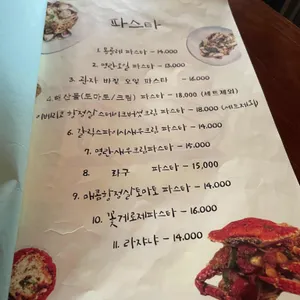 파스타
1. 봉골레 파스타 - 14.000
2. 명란오일 파스타 - 13.000
3. 관자 바질 오일 파스타 - 16.000
4. 해산물(토마토/크림) 파스타 - 18.000 (세트제외)
이베리코 항정살스테이크버섯크림 파스타 - 18.000 (세트제외)
6. 갈릭스파이시새우크림 파스타 - 14.000
7. 명란새우크림파스타 - 15.000
8. 라구 파스타 - 15,000
9. 매콤항정살토마토 파스타 - 14.000
10. 꽃게로제파스타 - 16.000
11. 라자냐 - 14.000